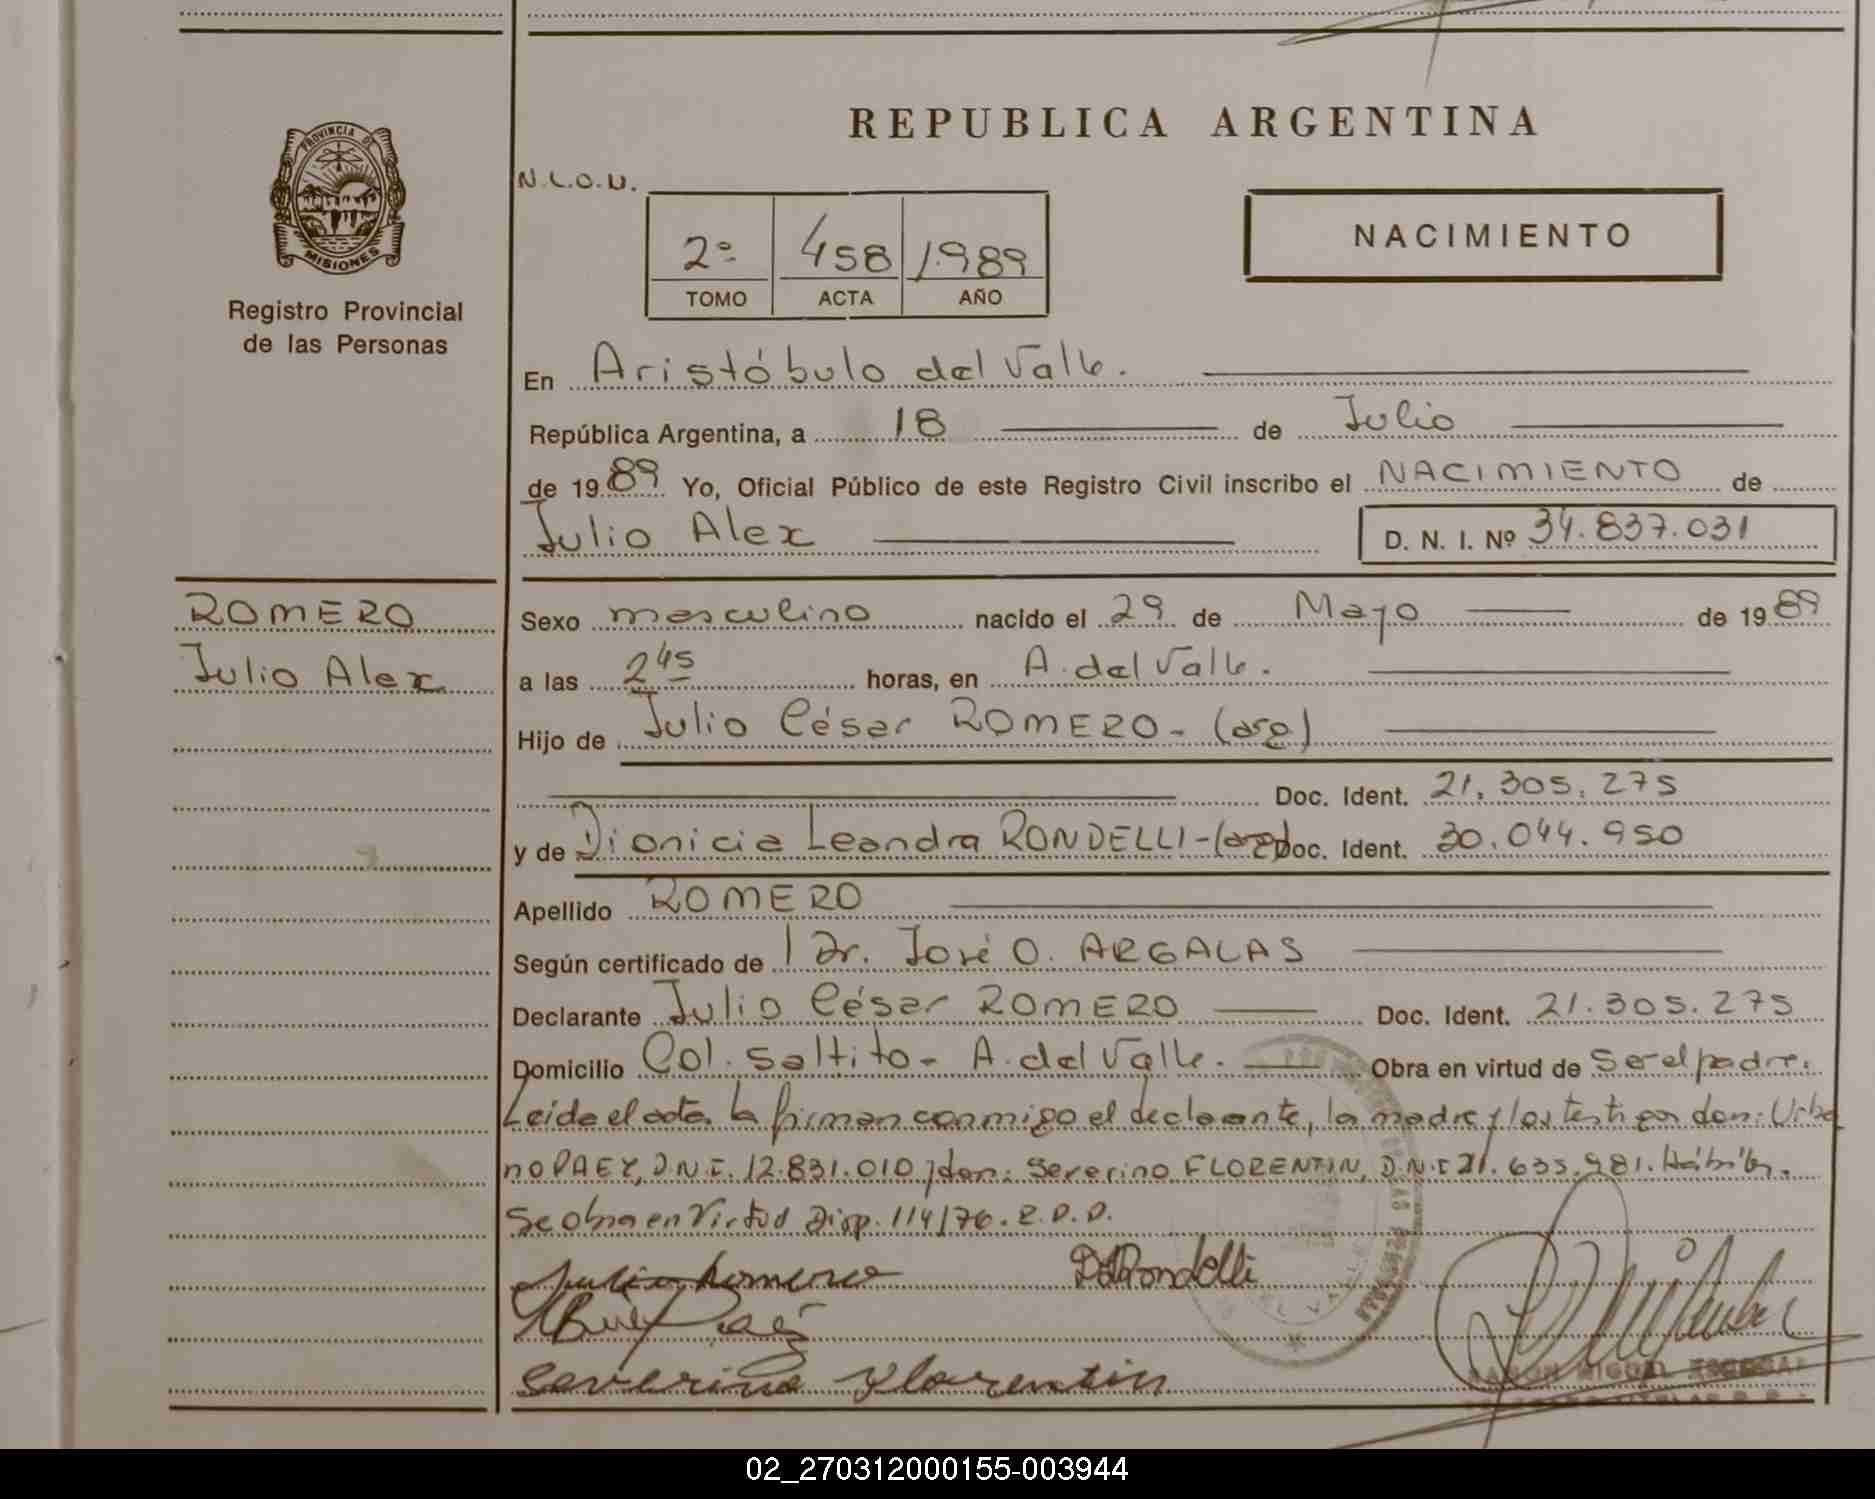 REPUBLICA ARGENTINA
PROVINCIA DE
MISIONES
Registro Provincial
de las Personas
N.L.O.U.
2º 458 1.989
TOMO ACTA AÑO
NACIMIENTO
En Aristóbulo del Valle.
República Argentina, a 18 de Julio
de 1989 Yo, Oficial Público de este Registro Civil inscribo el NACIMIENTO de
Julio Alex D. N. I. Nº 34.837.031
ROMERO
Julio Alex
Sexo masculino nacido el 29 de Mayo de 1989
a las 2 45 horas, en A. del Valle.
Hijo de Julio César ROMERO- (arg)
Doc. Ident. 21.305.275
y de Dionicia Leandra RONDELLI-(arg) Doc. Ident. 30.044.950
Apellido ROMERO
Según certificado de Dr. José O. ARGALAS
Declarante Julio César ROMERO Doc. Ident. 21.305.275
Domicilio Col. Saltito- A. del Valle. Obra en virtud de Ser el padre.
Leida el acta la firman conmigo el declarante, la madre y los testigos don: Urba
no PAEZ, D.N.I. 12.831.010 y don: Severino FLORENTIN, D.N.I 21.635.981. Hábiles.
Se obra en Virtud Disp. 114/76. R.P.P.
Julio Romero DLRondelli
Paez
Severino Florentin
RAMON MIGUEL
02_270312000155-003944